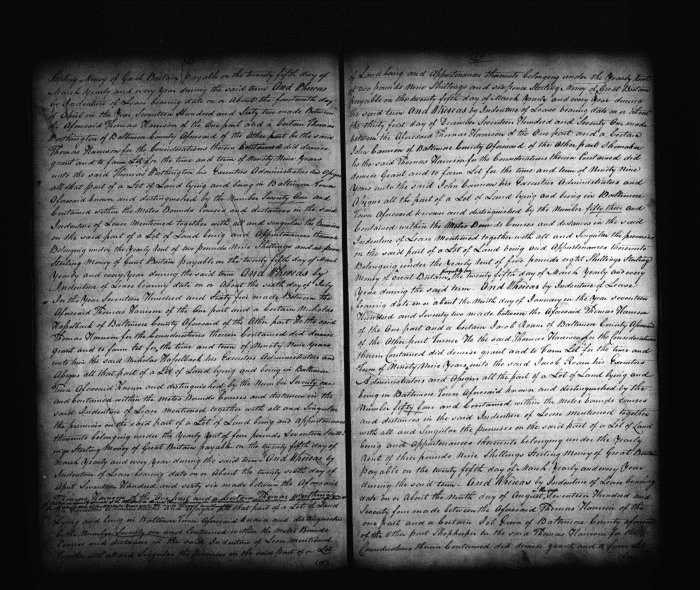 Sterling Money of Great Britain payable on the twenty fifth day of
March Yearly and every Year during the said term And Whereas
by Indenture of Lease bearing date on or About the fourteenth day
of April in the Year Seventeen Hundred and Sixty two made Between
the Aforesaid Thomas Harrison of the One part and a Certain Thomas
Worthington of Baltimore County Aforesaid of the Other part he the said
Thomas Harrison for the Considerations therein Contained did demise
grant and to farm Let for the time and term of Ninety Nine Years
unto the said Thomas Worthington his Executors Administrators and Assigns
all that part of a Lot of Land lying and being in Baltimore Town
Aforesaid known and distinguished by the Number Seventy One and
Contained within the Metes Bounds Courses and distances in the said
Indenture of Lease Mentioned together with all and singular the premises
on the said part of a Lot of Land being and Appurtenances thereunto
Belonging under the Yearly Rent of two pounds Nine Shillings and six pence
Sterling Money of Great Britain payable on the twenty fifth day of March
Yearly and every Year during the said term And Whereas by
Indenture of Lease bearing date on or About the sixth day of July
In the Year Seventeen Hundred and Sixty four made Between the
Aforesaid Thomas Harrison of the One part and a Certain Nicholas
Hasselback of Baltimore County Aforesaid of the Other part He the said
Thomas Harrison for the Considerations therein Contained did demise
grant and to farm let for the time and term of Ninety Nine Years
unto him the said Nicholas Hasselback his Executors Administrators and
Assigns all that part of a Lot of Land lying and being in Baltimore
Town Aforesaid known and distinguished by the Number Seventy one
and Contained within the Metes Bounds Courses and distances in the
said Indenture of Lease mentioned together with all and Singular
the premises on the said part of a Lot of Land being and Appurtenances
thereunto belonging under the Yearly Rent of four pounds Seventeen Shill
ings Sterling Money of Great Britain payable on the twenty fifth day of
March Yearly and every Year during the said term And Whereas by
Indenture of Lease bearing date on or About the twenty sixth day of
Seventeen Hundred and sixty six made between the Aforesaid
Thomas Harrison of the One part and a Certain Thomas Worthington
all that part of a Lot of Land
Lying and being in Baltimore Town Aforesaid known and distinguished
by the Number Seventy one and Contained within the Metes Bounds
Courses and distances in the said Indenture of Lease Mentioned
together with all and Singular the premises on the said part of a Lot
of Land being and Appurtenances thereunto belonging under the Yearly Rent
of two pounds Nine Shillings and six pence Sterling Money of Great Britain
payable on the twenty fifth day of March Yearly and every Year during
the said term And Whereas by Indenture of Lease bearing date on or about
the thirty first day of December Seventeen Hundred and Seventy One made
between the Aforesaid Thomas Harrison of the One part and a Certain
John Cannon of Baltimore County Aforesaid of the Other part Shoemaker
he the said Thomas Harrison for the Considerations therein Contained did
demise Grant and to farm Let for the time and term of Ninety Nine
Years unto the said John Cannon his Executors Administrators and
Assigns all the part of a Lot of Land lying and being in Baltimore
Town Aforesaid known and distinguished by the Number fifty three and
Contained within the Metes Bounds Courses and distances in the said
Indenture of Lease Mentioned together with all and Singular the premises
on the said part of a Lot of Land being and Appurtenances thereunto
Belonging under the Yearly Rent of five pounds eight Shillings Sterling
Money of Great Britain the twenty fifth day of March Yearly and every
Year during the said term And Whereas by Indenture of Lease
bearing date on or about the Ninth day of January in the Year seventeen
Hundred and Seventy two made between the Aforesaid Thomas Harrison
of the One part and a Certain Jacob of Baltimore County Aforesaid
of the Other part He the said Thomas Harrison for the Considerations
therein Contained did demise grant and to Farm Let for the time and
Term of Ninety Nine Years unto the said Jacob his Executors
Administrators and Assigns all the part of a Lot of Land lying and
being in Baltimore Town Aforesaid known and distinguished by the
Number fifty four and Contained within the Metes bounds courses
and distances in the said Indenture of Lease mentioned together
with all and Singular the premises on the said part of a Lot of Land
being and Appurtenances thereunto belonging under the Yearly
Rent of three pounds Nine Shillings Sterling Money of Great Britain
payable on the twenty fifth day of March Yearly and every Year
during the said term And Whereas by Indenture of Lease bearing
date on or about the Ninth day of August Seventeen Hundred and
Seventy four made between the Aforesaid Thomas Harrison of the
one part and a Certain Green of Baltimore County aforesaid
of the Other part Shopkeeper he the said Thomas Harrison for the
Considerations therein Contained did demise grant and to farm Let